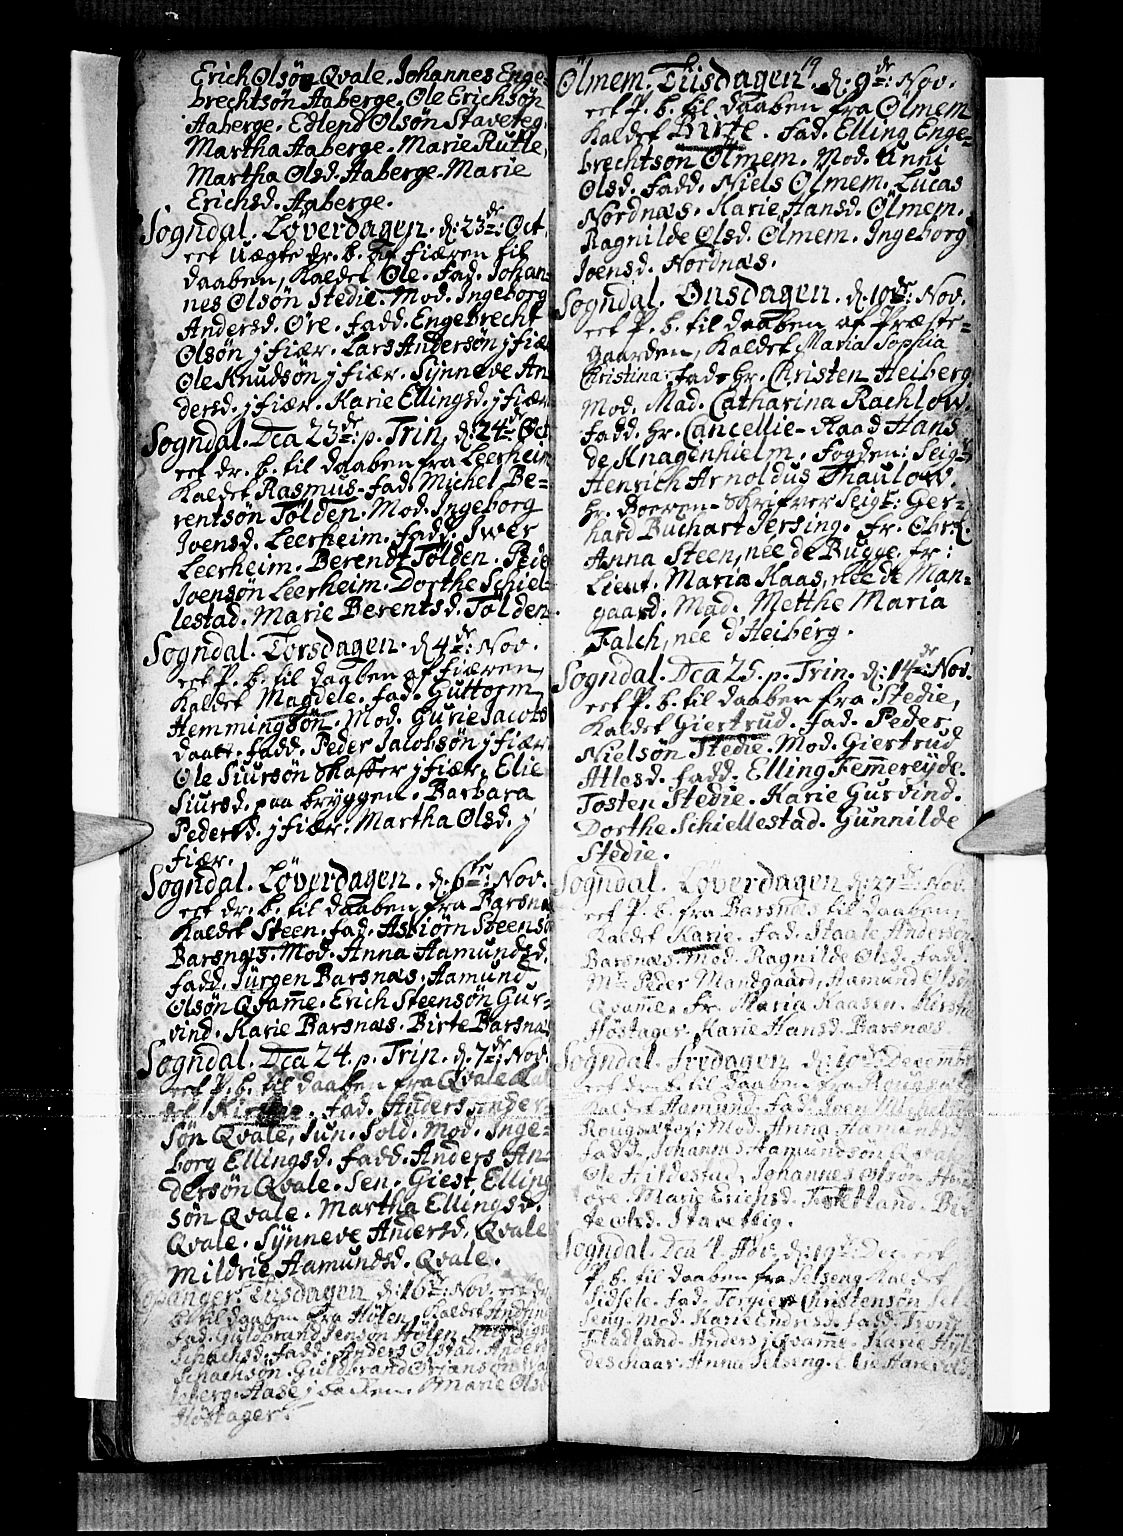 Erich Olsøn Qvale. Johannes Enge-
brechtsøn Aaberge. Ole Erichsøn
Aaberge. Edlend Olsøn Staveteg.
Martha Aaberge. Marie Rutle,
Martha Olsd. Aaberge. Marie
Erichsd. Aaberge.
Sogndal. Løverdagen. d: 23de: Oct.
eet Uægte dr. b. af fiæren til
daaben, kaldet Ole. fad. Johan-
nes Olsøn Stedie. Mod. Ingeborg
Andersd. Øre. fadd. Engebrecht
Olsøn j fiær. Lars Andersøn j fiær
Ole Knudsøn j fiær. Synneve An
dersd. j fiær. Karie Ellingsd. j fiær
Sogndal. Dca 23de: p. Trin, d: 24de: Oct
eet dr. b. til daaben fra Leerheim
kaldet Rasmus. fad. Michel Be-
rentsøn Tølden. Mod. Ingeborg
Joensd. Leerheim. fadd. Iwer
Leerheim. Berendt Tølden. Peder
Joensøn Leerheim. Dorthe Schiel-
lestad. Marie Berentsd. Tølden.
Sogndal. Torsdagen. d 4de: Nov.
eet P. b. til daaben af fiæren,
kaldet Magdele. fad. Guttorm
Hemmingsøn. Mod. Gurie Jacobs
daatr. fadd. Peder Jacobsøn j fiær
Ole Siursøn Skaffer j fiær. Elie
Siursd. paa bryggen. Barbara
Pedersd. j fiær. Martha Olsd. j
fiær.
Sogndal. Løverdagen. d. 6te: Nov.
eet dr. b. til daaben fra Barsnæs
kaldet Steen. fad. Asbiørn Steensøn
Barsnæs. Mod. Anna Aamundsd.
fadd. Jürgen Barsnæs. Aamund
Olsøn Qvamme. Erich Steensøn Gur-
vind. Karie Barsnæs. Birte Barsnæs
Sogndal. Dca 24. p. Trin. d. 7de: Nov.
eet P. b. til daaben fra Qvale kal
det fad. Anders Ander-
søn Qvale, Jun. Sold. Mod. Inge-
borg Ellingsd. fadd. Anders An-
dersøn Qvale. Sen. Giest Elling
søn Qvale. Martha Ellingsd.
Qvale. Synneve Andersd. Qvale
Mildrie Aamundsd. Qvale.
Tiisdagen d: 16de: Nov. eet dr.
b. til daaben fra Hølen, kaldet
fad. Guldbrand Jensøn Hølen.
fadd. Anders Ølstad. Anders
Guldbrand
Aase j backen. Marie Olsd.
Høstager.
19
Ölmem. Tiisdagen. d. 9de: Nov.
eet P. b. til daaben fra Ölmem
kaldet Birte. fad. Elling Enge-
brechtsøn Ölmem. Mod. Unni
Olsd. fadd. Niels Ölmem. Lucas
Nordnæs. Karie Hansd. Ölmem.
Ragnilde Olsd. Ölmem. Ingeborg
Joensd. Nordnæs.
Sogndal. Onsdagen. d. 10de: Nov.
eet P. b. til daaben af Præste-
gaarden, kaldet Maria Sophia
Christina. fad. hr. Christen Heiberg
Mod. Mad. Catharina Rachlow.
fadd. hr. Cancellie-Raad Hans
de Knagenhielm. Fogden: Seigr
Henrich Arnoldus Thaulow.
hr. Soeren-Skrifver Seigr: Ger-
hard Buchart Jersing. fr. Obrl.
Anna Steen, née de Bugge. fr:
Lieut. Maria Haas, née de Man-
gaard. Mad. Metthe Maria
Falch, née d'Heiberg.
Sogndal. Dca 25. p. Trin. d: 14de: Nov.
eet P. b. til daaben fra Stedie,
kaldet Giertrud. fad. Peder
Nielsøn Stedie. Mod. Giertrud
Atlesd. fadd. Elling Femmereyde.
Tosten Stedie. Karie Gurvind.
Dorthe Schiellestad. Gunnilde
Stedie.
Sogndal. Løverdagen d: 27de: Nov.
eet P. b. fra Barsnæs til daaben,
kaldet Karie. fad. Staale Andersøn
Barsnæs. Mod. Ragnilde Olsd. fadd.
Mr. Peder Mandgaard, Aamund Olsøn
Qvamme. fr. Maria Haasen. Kirstie
Høstager. Karie Hansd. Barsnæs.
Sogndal. Fredagen d: 10de Decembr
eet dr. b. til daaben fra
kaldet Aamund. fad. Joen
Mod. Anna Aamundsd.
fadd. Johannes Aamundsøn Qvale
Ole Hildestad, Johannes Olsøn
øre. Marie Erichsd. Flatland. Bir-
te Olsd. Stavetteig.
Sogndal. Dca 4. Adv. d: 19de: Dec. eet
P. b. til daaben fra Selseng kaldet
Sidsele. fad. Torgier Christensøn Sel-
seng. Mod. Karie Endresd. fadd. Trond
Fladland. Anders j Qvamme. Karie Hyl-
deschaar. Anna Selseng.